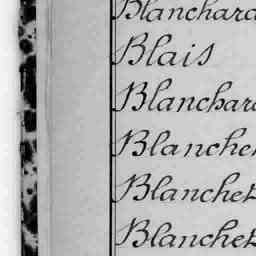 Blanchard
Blais
Blanchard
Blanchet
Blanchet
Blanchet